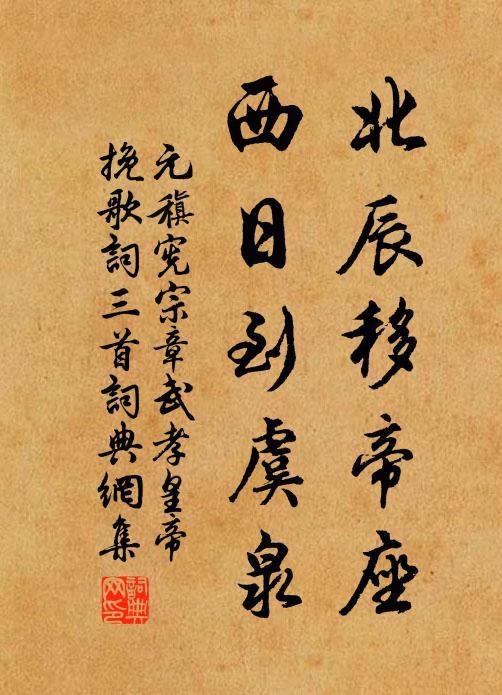 北辰移帝座
西日到虞泉
元稹宪宗章武孝皇帝
挽歌詞三首詞典網集
詞典
网印